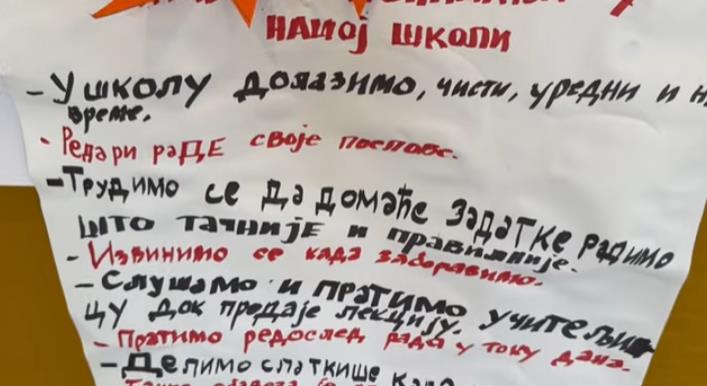 НАШОЈ ШКОЛИ
- У ШКОЛУ ДОЛАЗИМО, ЧИСТИ, УРЕДНИ И Н
ВРЕМЕ.
- РЕДАРИ РАДЕ СВОЈЕ ПОСЛОВЕ.
- ТРУДИМО СЕ ДА ДОМАЋЕ ЗАДАТКЕ РАДИМО
ШТО ТАЧНИЈЕ И ПРАВИЛНИЈЕ.
- ИЗВИНИМО СЕ КАДА ЗАБОРАВИМО.
- СЛУШАМО И ПРАТИМО УЧИТЕЉИ
ЦУ ДОК ПРЕДАЈЕ ЛЕКЦИЈУ.
- ПРАТИМО РЕДОСЛЕД РАДА У ТОКУ ДАНА.
- ДЕЛИМО СЛАТКИШЕ КАДА